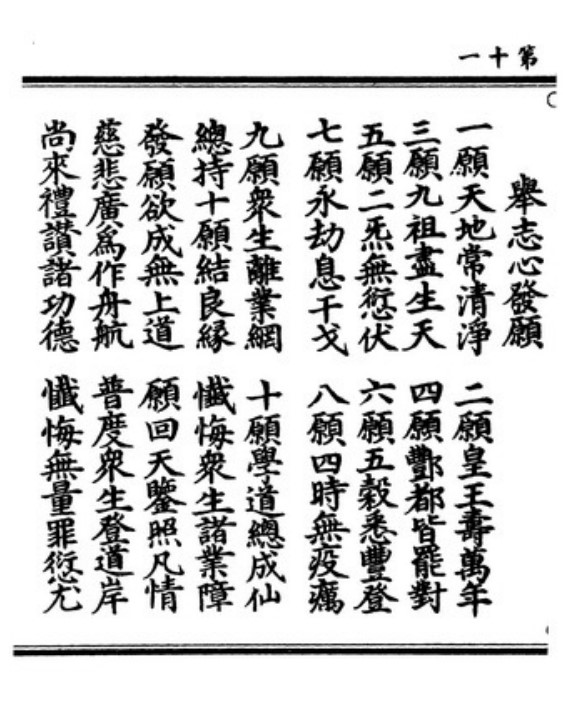 第十一
舉志心發願
一願天地常清淨 二願皇王壽萬年
三願九祖盡生天 四願酆都皆罷對
五願二炁無愆伏 六願五穀悉豐登
七願永劫息干戈 八願四時無疫癘
九願衆生離業網 十願學道總成仙
總持十願結良緣 懺悔衆生諸業障
發願欲成無上道 願回天鑒照凡情
慈悲廣爲作舟航 普度衆生登道岸
尚來禮讃諸功德 懺悔無量罪愆尤